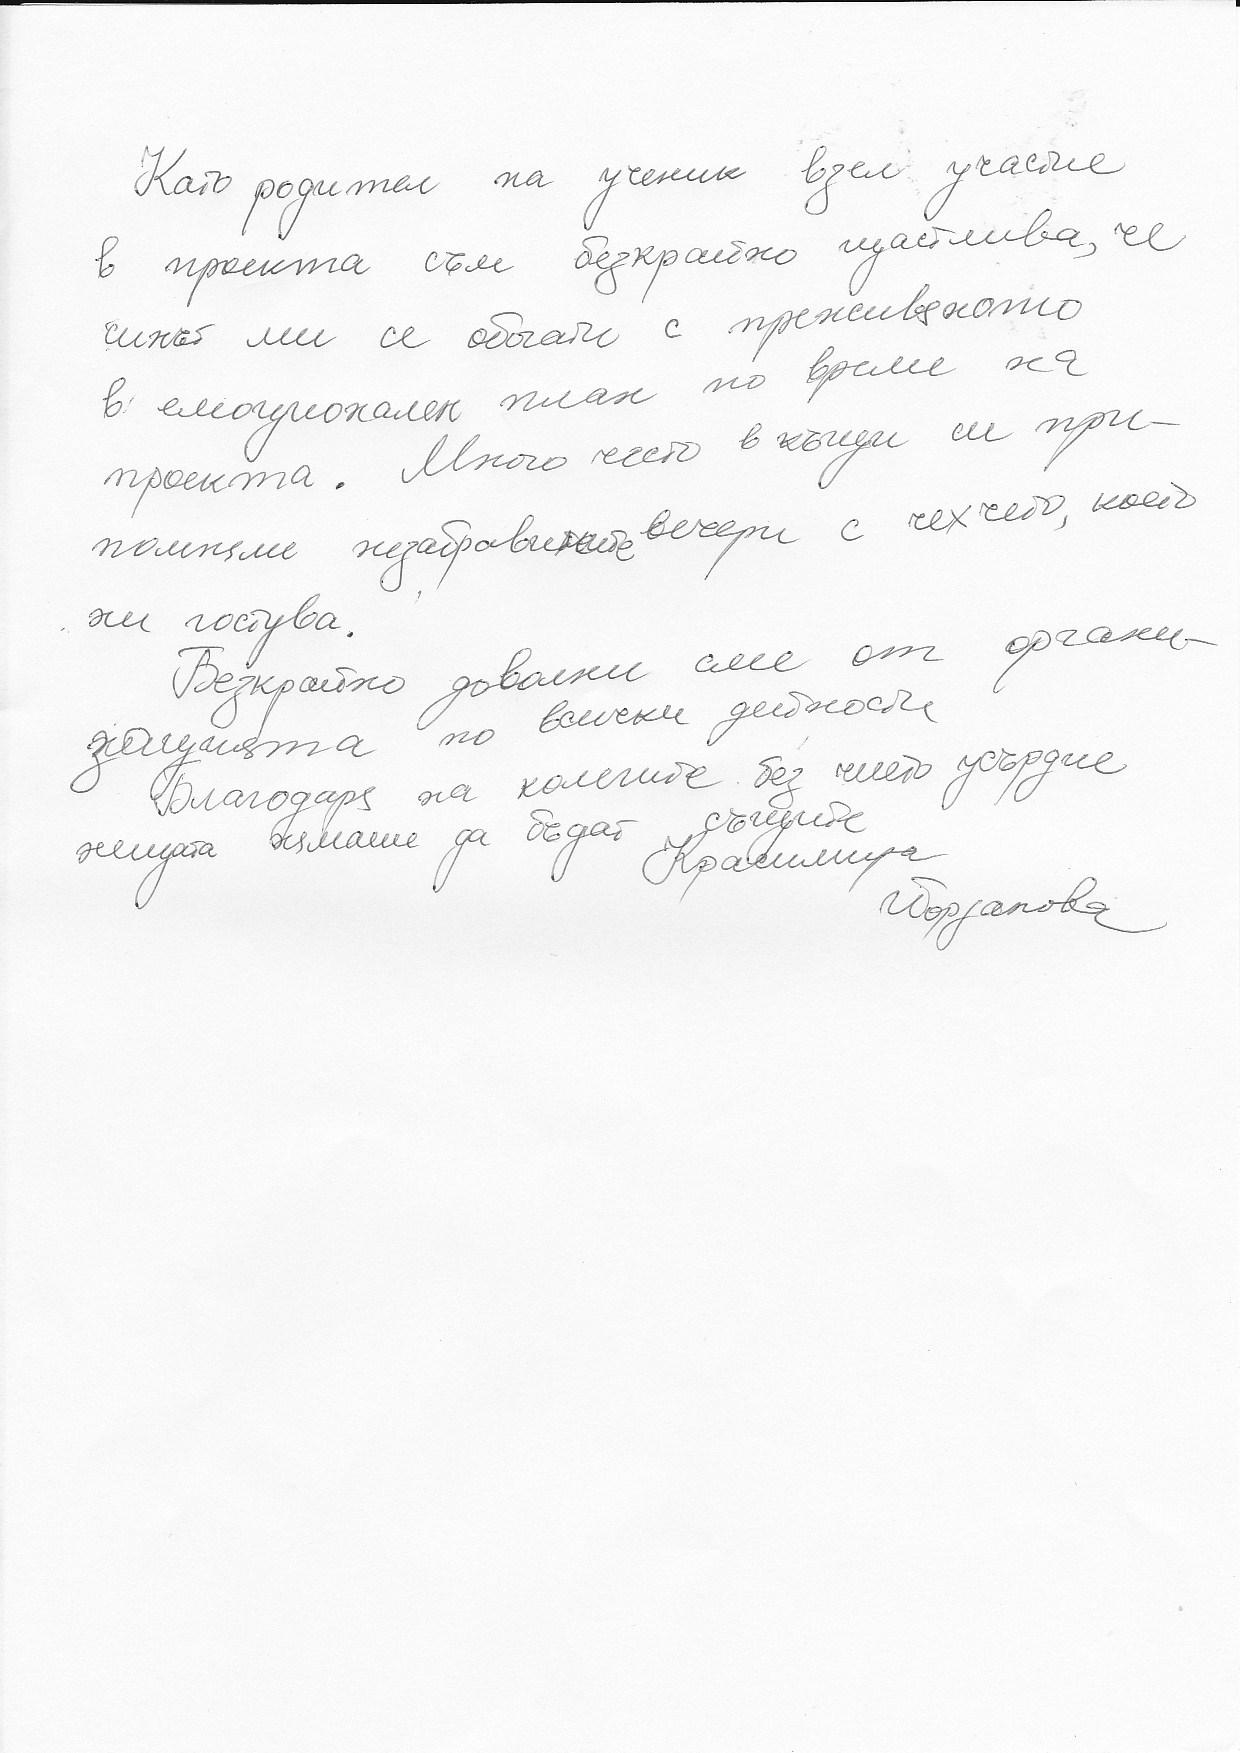 Като родител на ученик взел участие
в проекта съм безкрайно щастлива, че
синът ми се обогати с преживяното
в емоционален план по време на
проекта. Много често в къщи си при-
помняме незабравимите вечери с чехчето, което
ни гостува.
Безкрайно доволни сме от органи-
зацията по всички дейности
Благодаря на колегите без чието усърдие
нещата нямаше да бъдат същите
Красимира
Йорданова